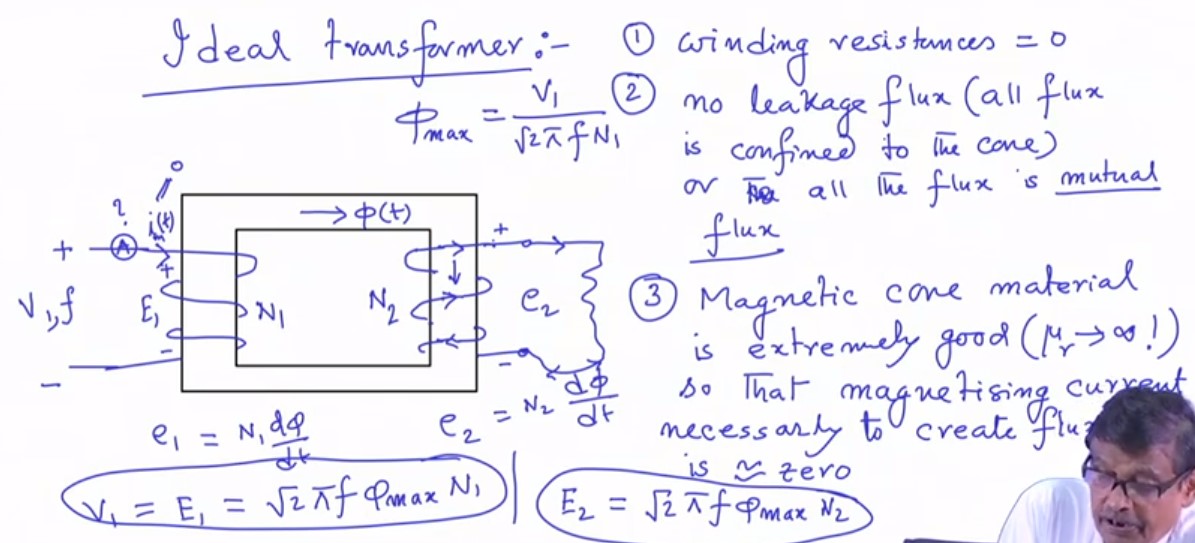 Ideal transformer :-
Φmax = V₁ / √2πfN₁
① winding resistances = 0
② no leakage flux (all flux
is confined to the core)
or all the flux is mutual
flux
③ Magnetic core material
is extremely good (μr → ∞!)
so that magnetising current
necessarly to create
is ≈ zero
0
?
i(t)
→ φ(t)
+
A
+
V₁, f
E₁
N₁
-
-
N₂
+
e₂
-
e₁ = N₁ dφ/dt
e₂ = N₂ dφ/dt
V₁ = E₁ = √2πf φmax N₁
E₂ = √2πf φmax N₂